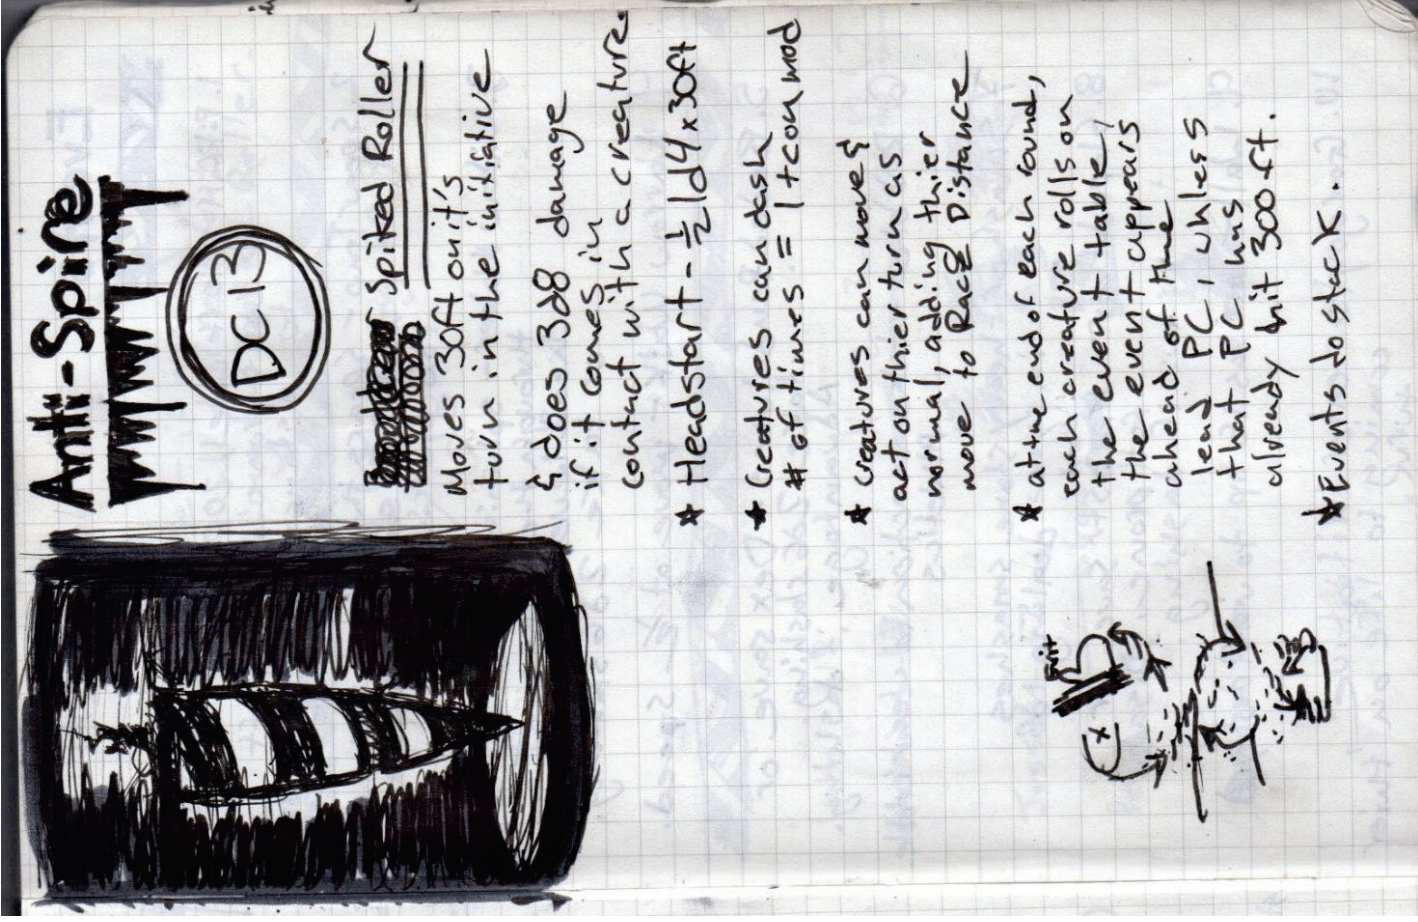 Anti-Spire
DC 13
Spiked Roller
Moves 30ft on it's
turn in the initiative
& does 3d8 damage
if it comes in
contact with a creature
* Headstart - ½ 1d4 x 30ft
* Creatures can dash
# of times = 1 + con mod
* creatures can move &
act on thier turn as
normal, adding thier
move to Race Distance
* at the end of each round,
each creature rolls on
the event table,
the event appears
ahead of the
lead PC, unless
that PC has
already hit 300ft.
* Events do stack.
Exit
x